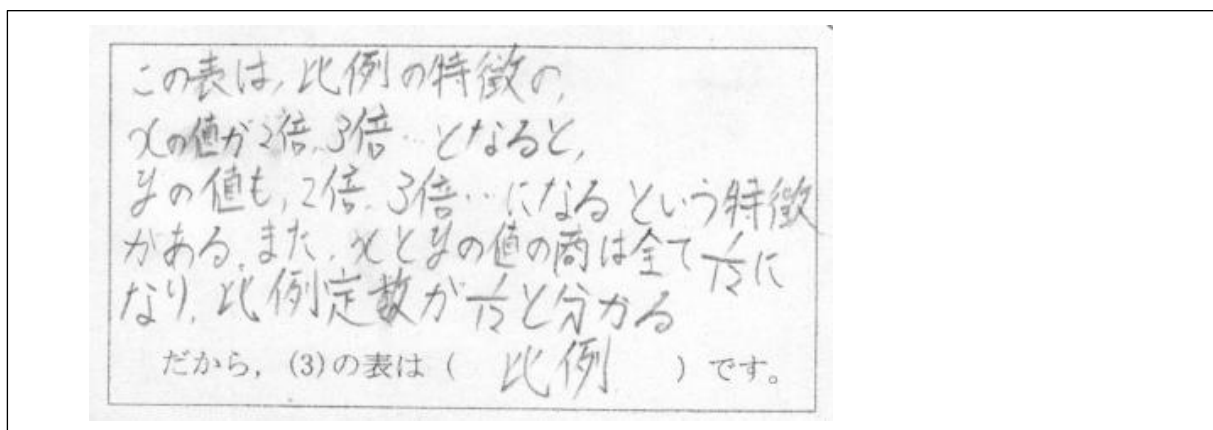 この表は,比例の特徴の,
xの値が2倍,3倍…となると,
yの値も,2倍,3倍…になるという特徴
がある。また,xとyの値の商は全て1/12に
なり,比例定数が1/12と分かる
だから,(3)の表は( 比例 )です。